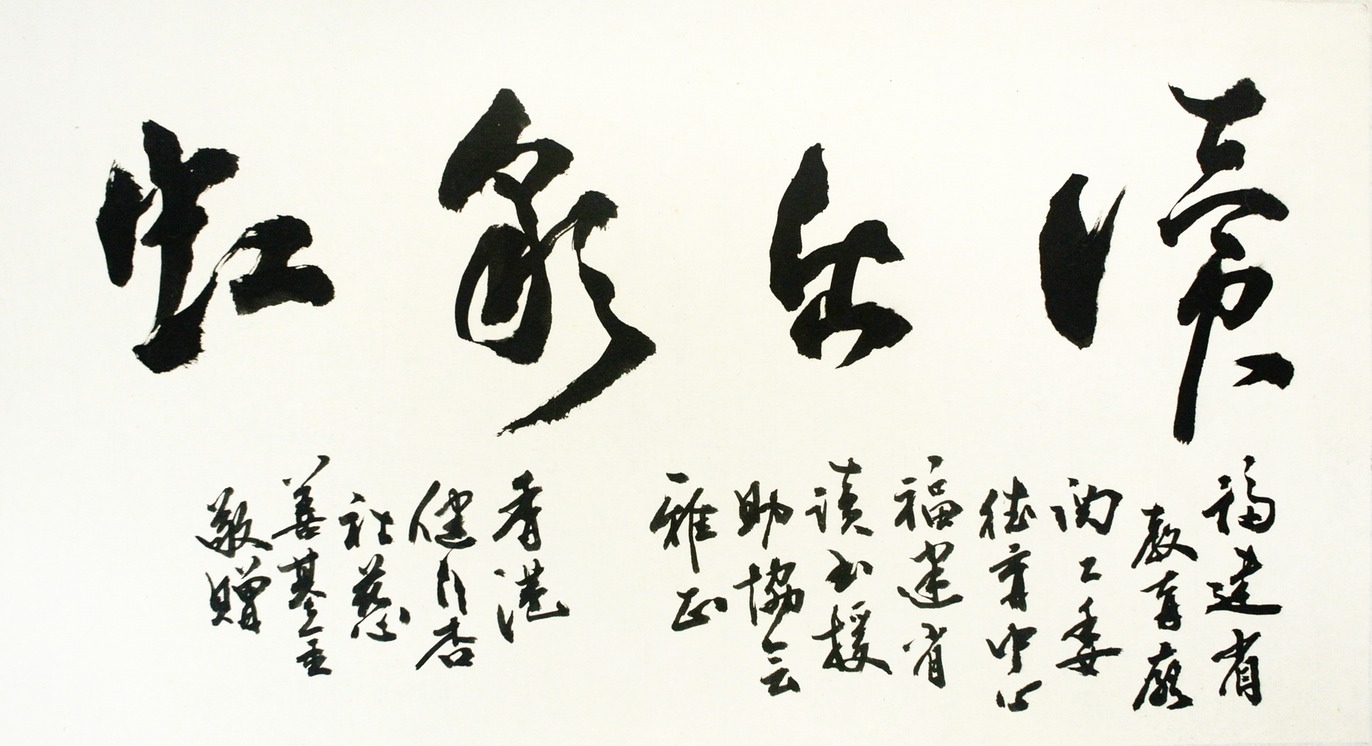 滴出彩虹
福建省
教育廳
関工委
德育中心
福建省
读书援
助協会
雅正
香港
健行杏
社慈
善基金
敬赠